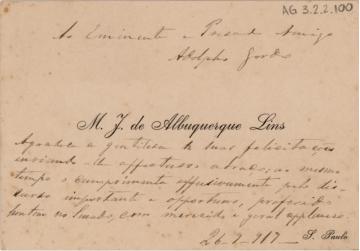 AG 3.2.2.100
Ao Eminente e Presado Amigo
Adolpho Gordo
M. J. de Albuquerque Lins
Agradece a gentileza de suas felicitações
enviando-lhe affectuoso abraço, ao mesmo
tempo o cumprimenta effusivamente pelo dis-
curso importante e opportuno, proferido
hontem no Senado, com merecido e geral applauso.
26-9-917
S. Paulo